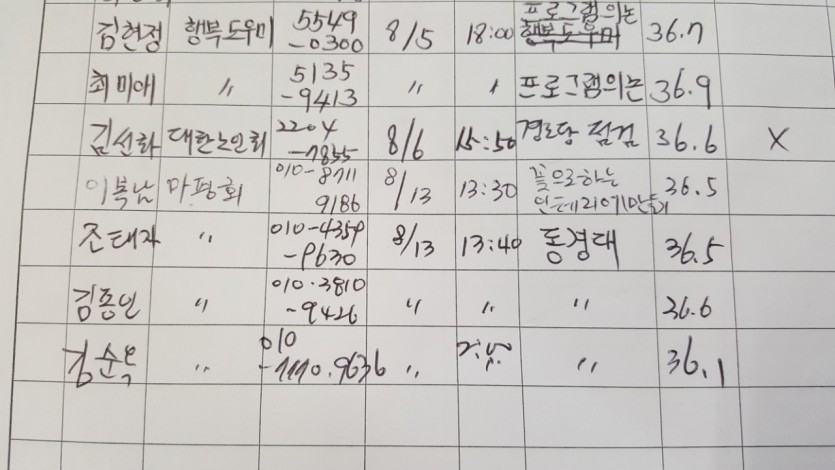 김현정 행복도우미 5549 -0300 8/5 18:00 프로그램의논 행복도우미 36.7
최미애 〃 5135 -9413 〃 〃 프로그램의논 36.9
김선화 대한노인회 2204 -7855 8/6 15:50 경로당 점검 36.6 X
이복남 마평회 010-8711 9186 8/13 13:30 꽃으로하는 인테리어만들기 36.5
조태자 〃 010-4359 -9630 8/13 13:40 동경대 36.5
김동인 〃 010.3810 -9426 〃 〃 〃 36.6
김순옥 〃 010 -7170.9636 〃 〃 36.1